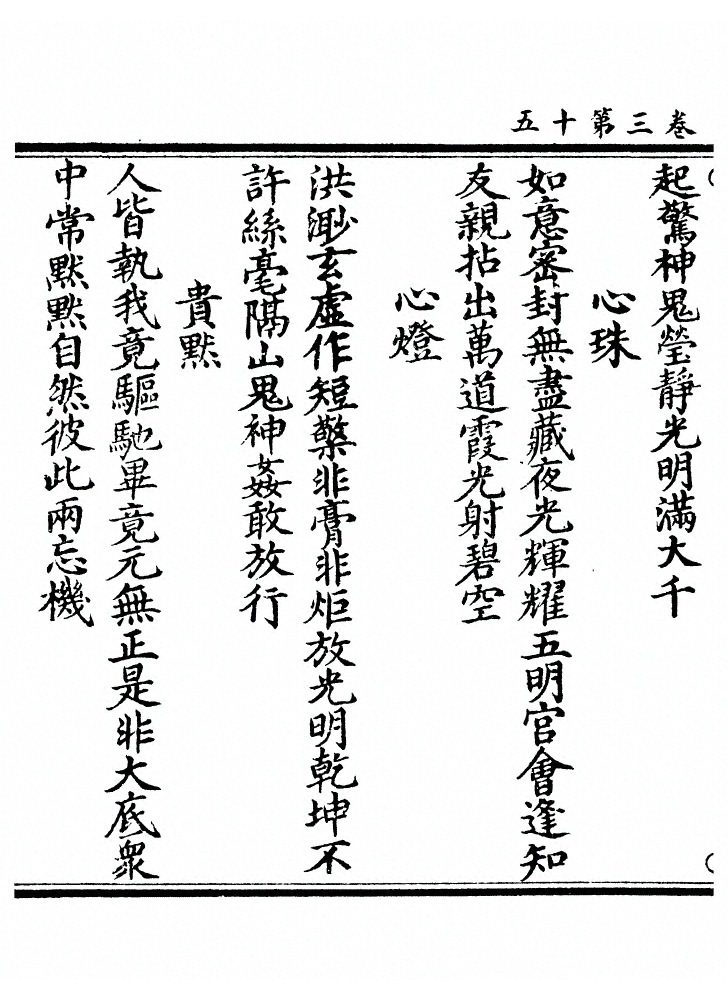 卷三第十五
起驚神鬼瑩靜光明滿大千
心珠
如意密封無盡藏夜光輝耀五明宮會逢知
友親拈出萬道霞光射碧空
心燈
洪濛玄虛作短檠非膏非炬放光明乾坤不
許絲毫隔山鬼神姦敢放行
貴默
人皆執我竟驅馳畢竟元無正是非大底衆
中常默默自然彼此兩忘機